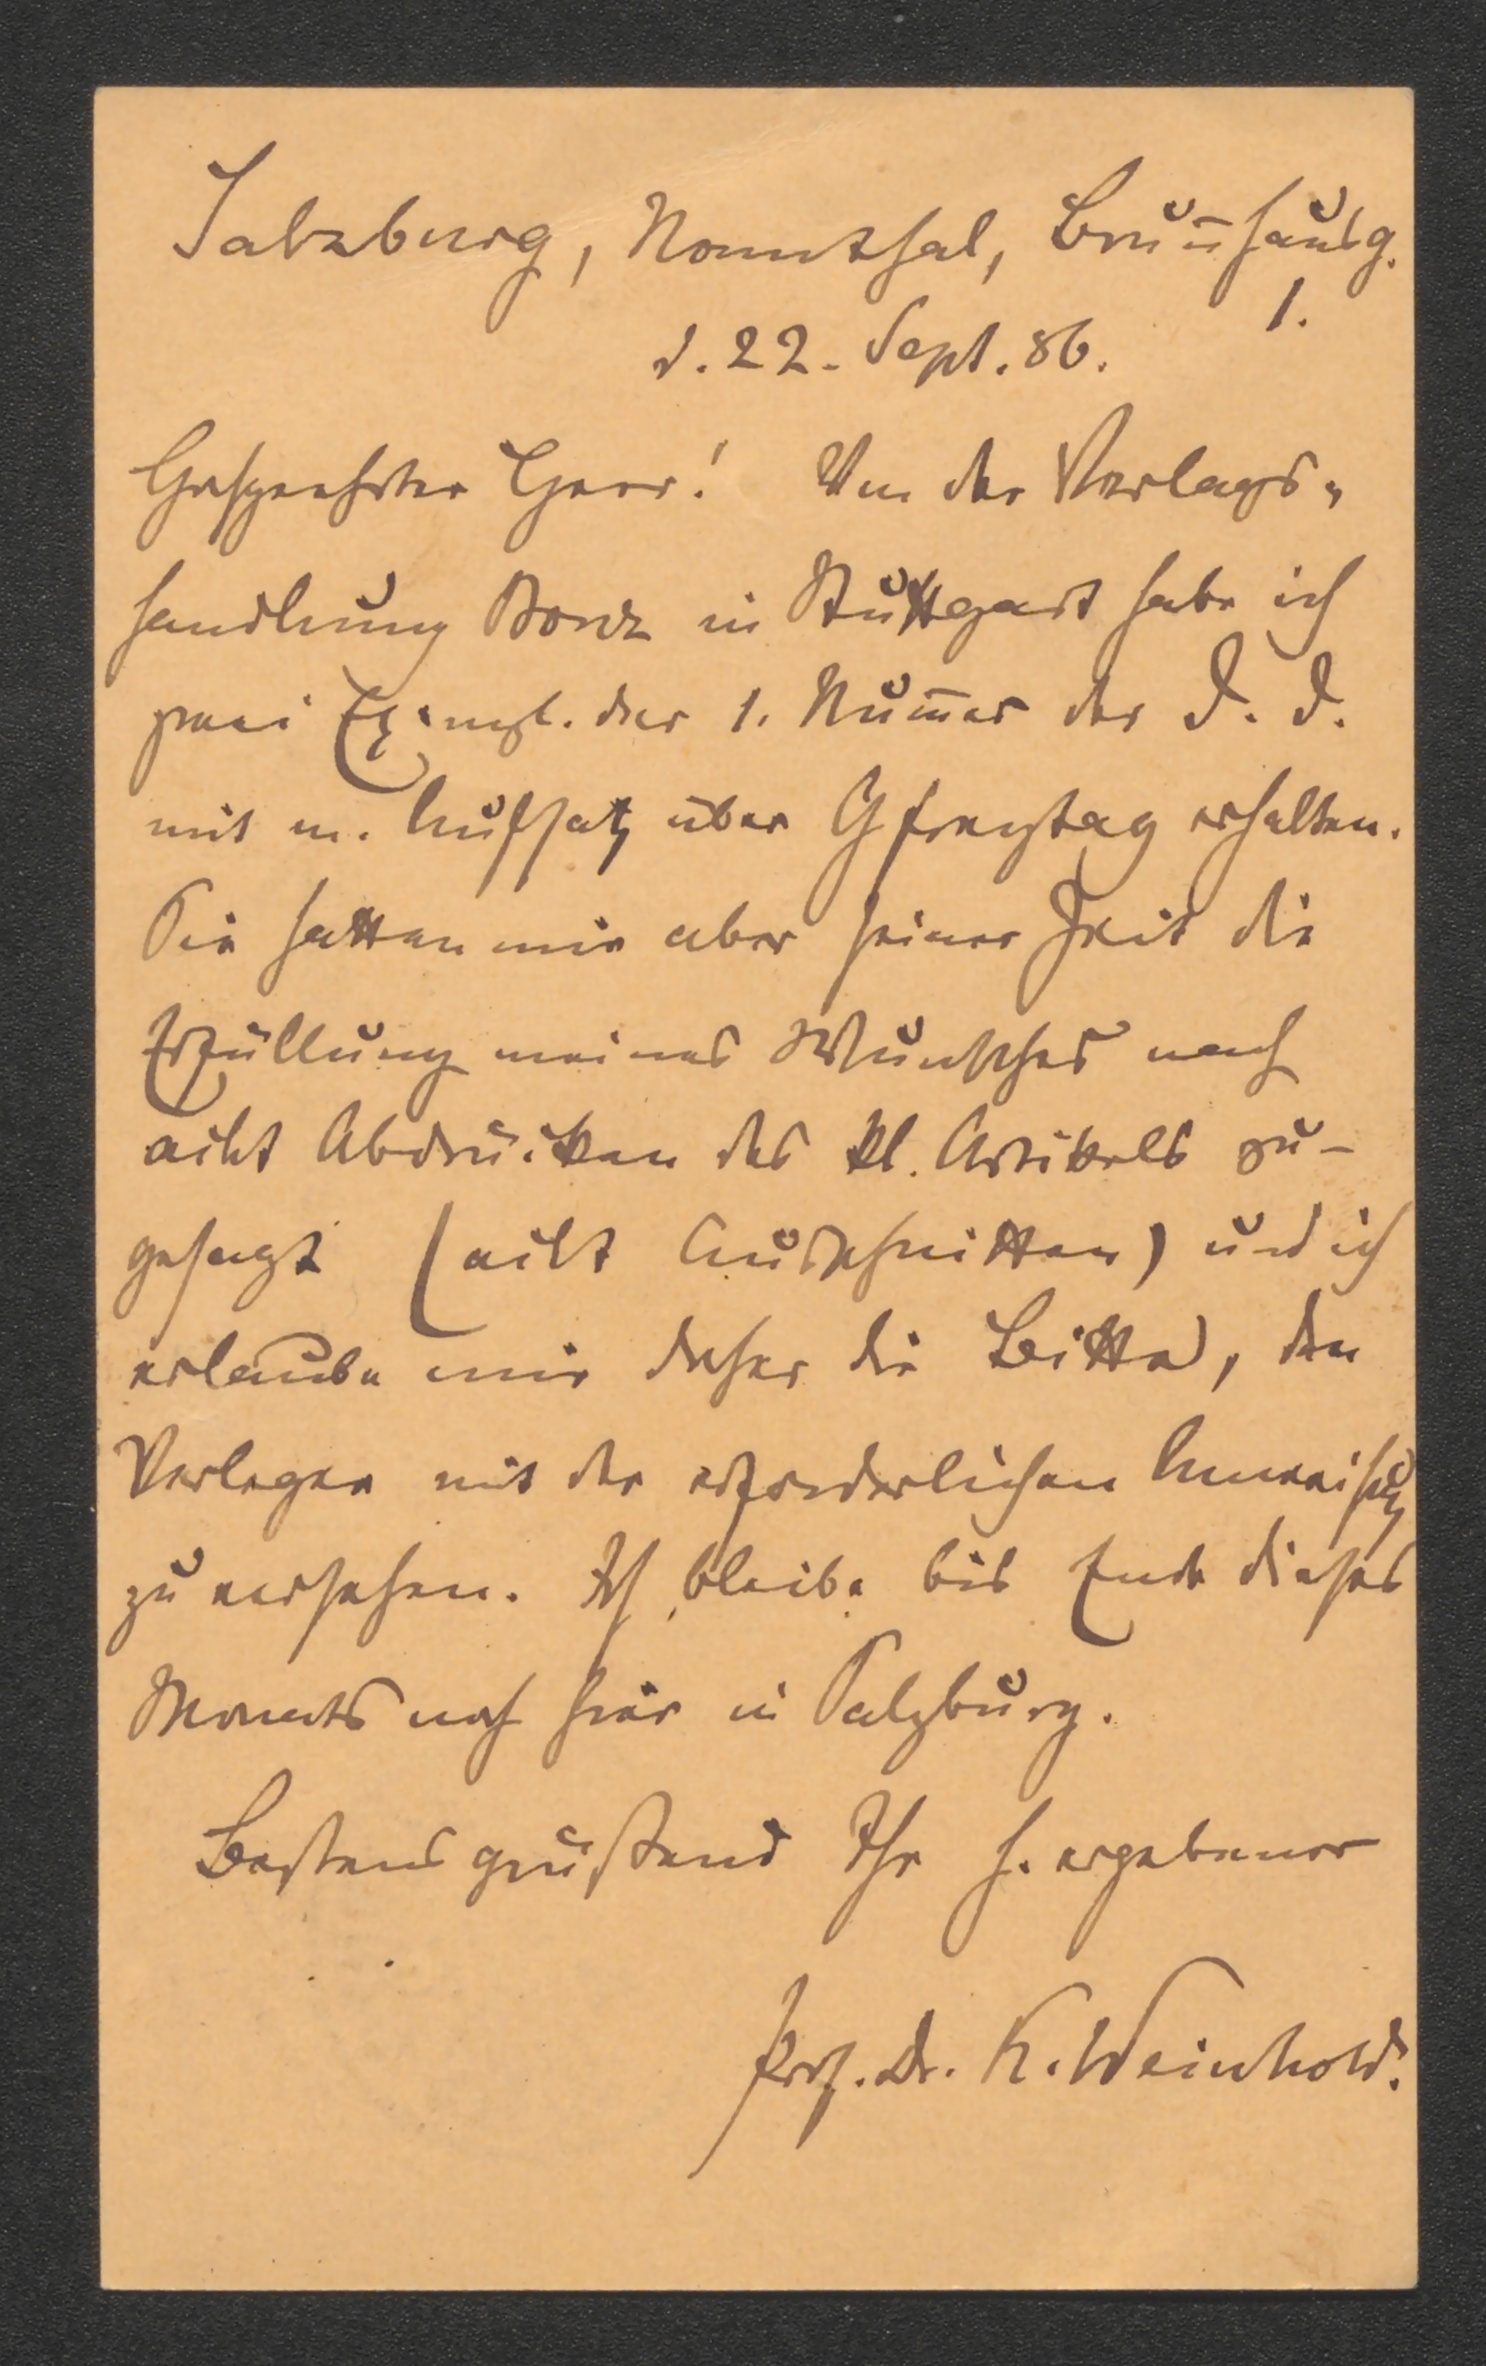 Salzburg, Nonnthal, Brun̅hausg.
1.
d. 22. Sept. 86.
Geehrtester Herr! Von der Verlags-
handlung Bonz in Stuttgart habe ich
zwei Exempl. der 1. Num̅er der D. D.
mit m. Aufsatz über G Freytag erhalten.
Sie hatten mir aber seiner Zeit die
Erfüllung meines Wunsches nach
acht Abdrücken des kl. Artikels zu-
gesagt (acht Ausschnitten) und ich
erlaube mir daher die Bitte, den
Verleger mit der erforderlichen Anweisung
zu versehen. Ich bleibe bis Ende dieses
Monats noch hier in Salzburg.
Bestens grüßend Ihr h. ergebener
Prof. Dr. K. Weinhold.